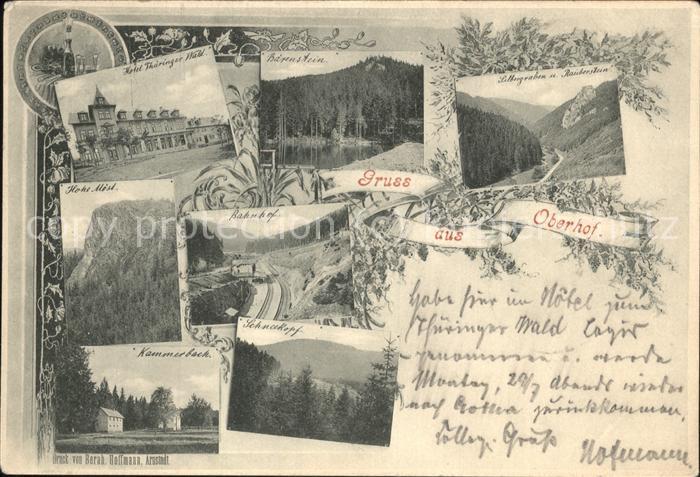 Hotel Thüringer Wald.
Bärenstein.
Silbergraben u. Räuberstein.
Hohe Möst.
Bahnhof.
Gruss
aus Oberhof.
Kammerbach.
Schneekopf.
Habe hier im Hôtel zum
Thüringer Wald Logis
genommen u. werde
Montag, 29/7 abends wieder
nach Gotha zurückkommen.
Colleg. Gruß
Hofmann.
Druck von Bernh. Hoffmann, Arnstadt.